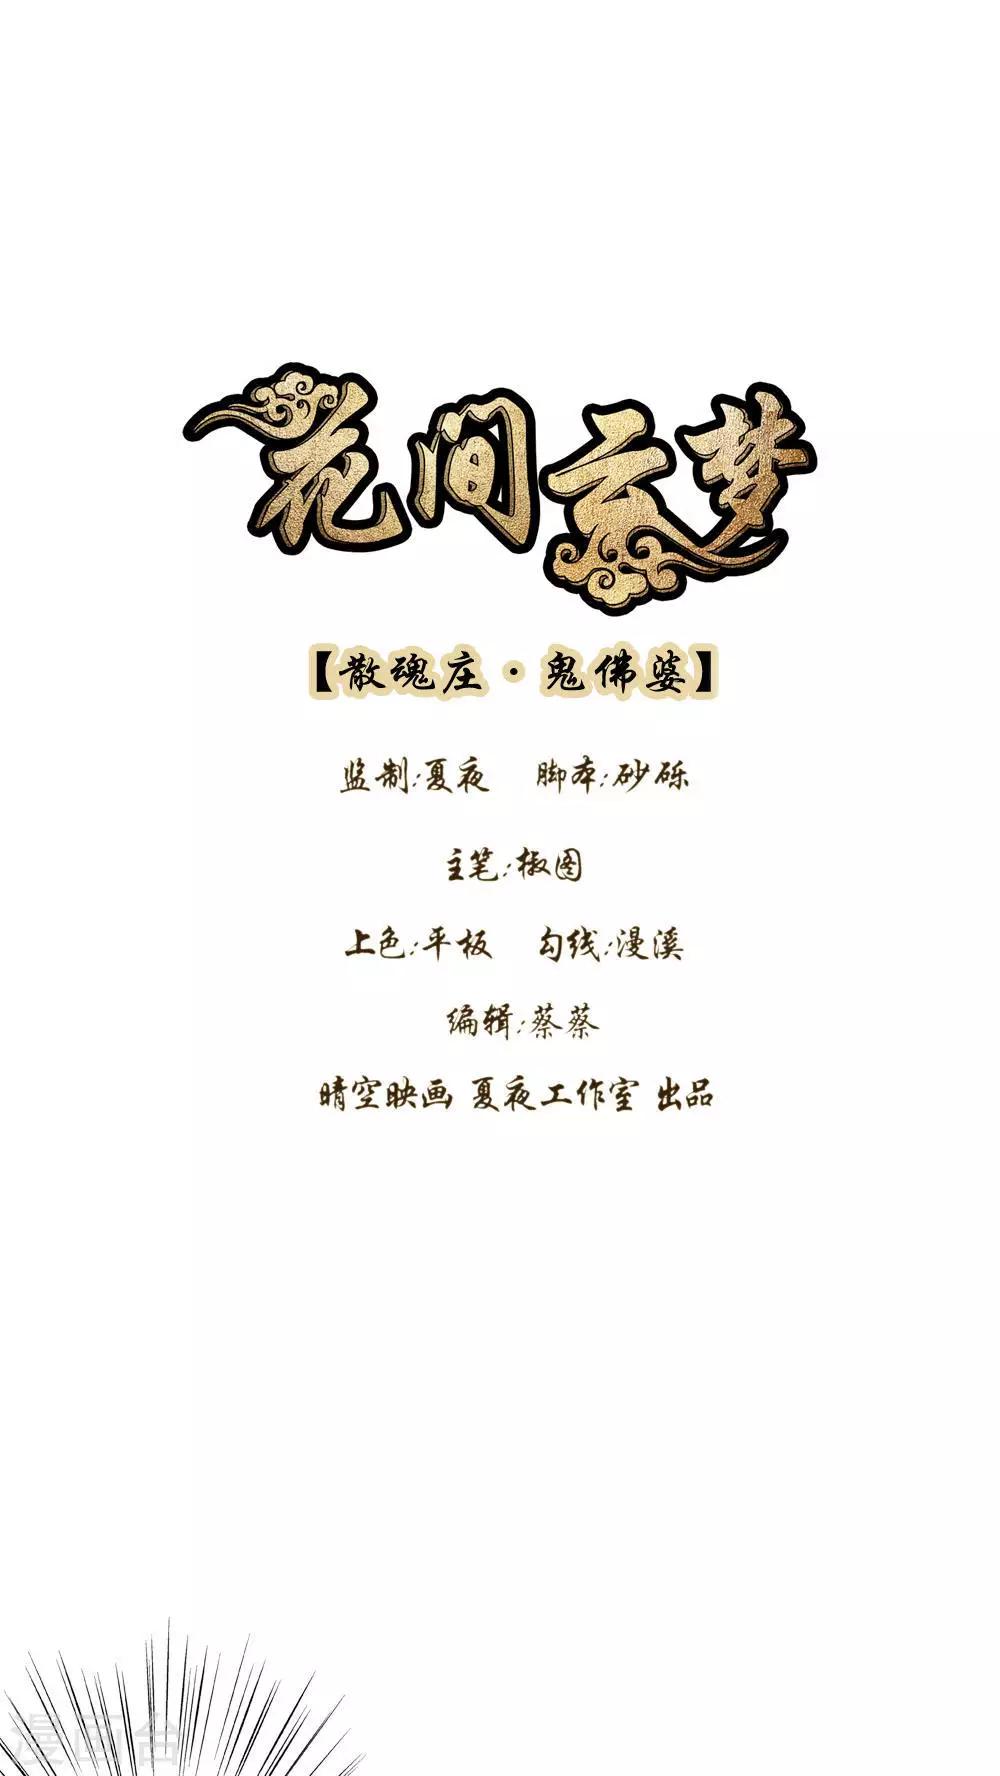 花间云梦
【散魂庄·鬼佛婆】
监制:夏夜 脚本:砂砾
主笔:椒图
上色:平板 勾线:漫溪
编辑:蔡蔡
晴空映画 夏夜工作室 出品
漫画台